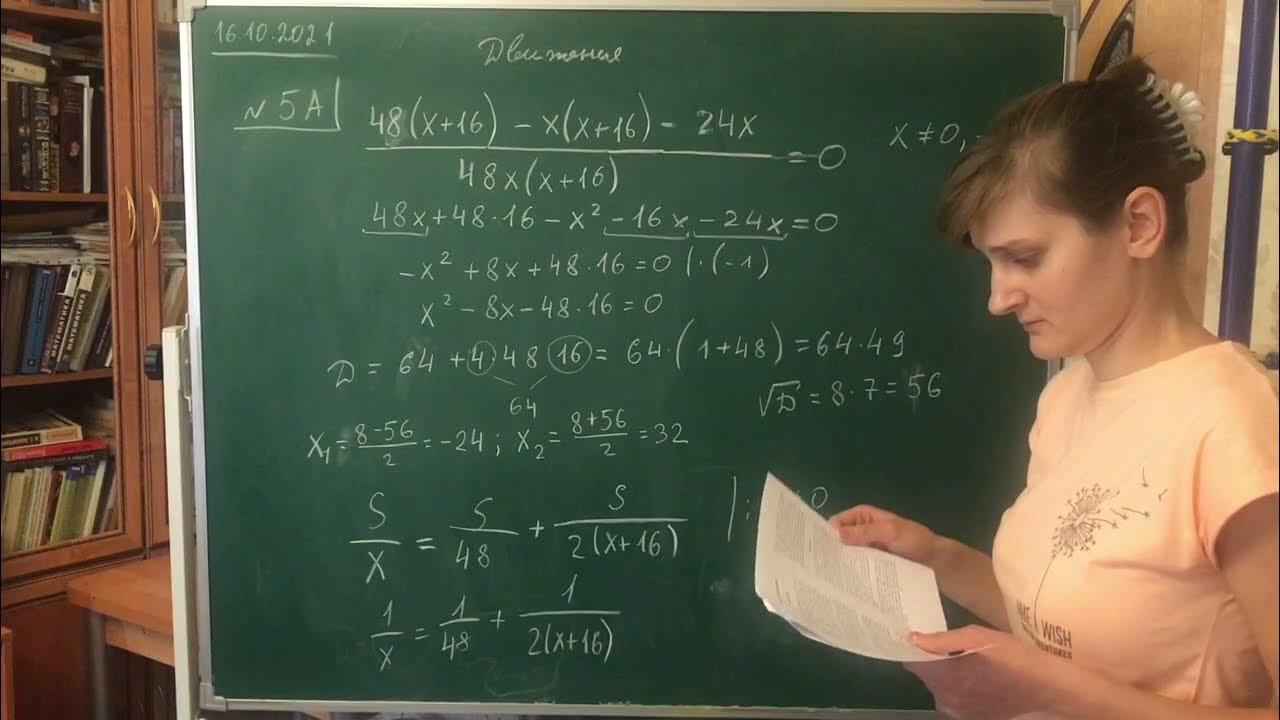 16.10.2021
Движения
№5А
48(x+16) - x(x+16) - 24x
48x(x+16)
=0
x≠0, -
48x+48·16-x²-16x-24x=0
-x²+8x+48·16=0 |·(-1)
x²-8x-48·16=0
D=64+4·48·16=64·(1+48)=64·49
64
√D=8·7=56
x₁=8-56/2=-24; x₂=8+56/2=32
S/x=S/48+S/2(x+16) |: ≠0
1/x=1/48+1/2(x+16)
МАТЕМАТИКА
МАТЕМАТИКА
WISH